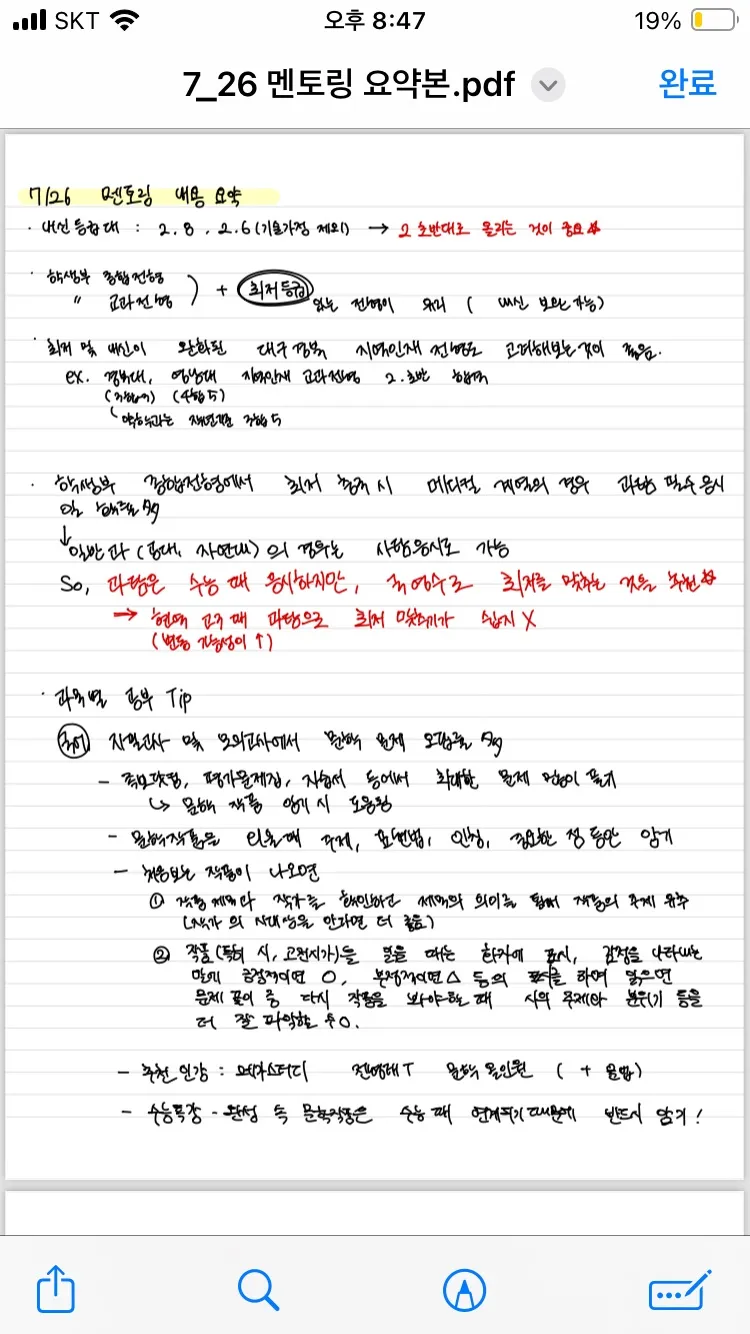 SKT
오후 8:47
19%
7_26 멘토링 요약본.pdf
완료
7/26 멘토링 내용 요약
· 내신 등급대 : 2.8, 2.6 (기술가정 제외) → 2 초반대로 올리는 것이 중요☆
· 학생부 종합전형
〃 교과전형 ) + 최저등급 있는 전형이 유리 ( 내신 보완가능)
· 최저 및 내신이 완화된 대구경북 지역인재 전형도 고려해보는것이 좋음.
ex. 경북대, 영남대 지역인재 교과전형 2.초반 합격
(4합5)
· 학생부 종합전형에서 최저 충족 시 메디컬 계열의 경우 과탐 필수 응시
일 확률 多
↓ 일반과 (공대, 자연대)의 경우는 사탐응시로 가능
So, 과탐은 수능 때 응시하지만, 국영수로 최저를 맞추는 것을 추천☆
→ 현역 고3 때 과탐으로 최저 맞추기가 쉽지 X
(변동 가능성이 ↑)
· 과목별 공부 Tip
국어 자필고사 및 모의고사에서 문학 문제 오답률 多
- 족보닷컴, 평가문제집, 자습서 등에서 최대한 문제 많이 풀기
↳ 문학 작품 암기 시 도움됨
- 문학작품을 읽을때 주제, 표현법, 인칭, 중요한 점 등만 암기
- 처음보는 작품이 나오면
① 작품 제목과 작가를 확인하고 제목의 의미를 통해 작품의 주제 유추
(작가의 시대상을 안다면 더 좋음)
② 작품(특히 시, 고전시가)을 읽을 때는 한자에 표시, 감정을 나타내는
말에 긍정적이면 O, 부정적이면 △ 등의 표시를 하며 읽으면
문제 풀이 중 다시 작품을 봐야할 때 시의 주제와 분위기 등을
더 잘 파악할 수 O.
- 추천 인강 : 메가스터디 전형태T 문학 올인원 ( + 문법)
- 수능특강·완성 속 문학작품은 수능 때 연계되기 때문에 반드시 암기!